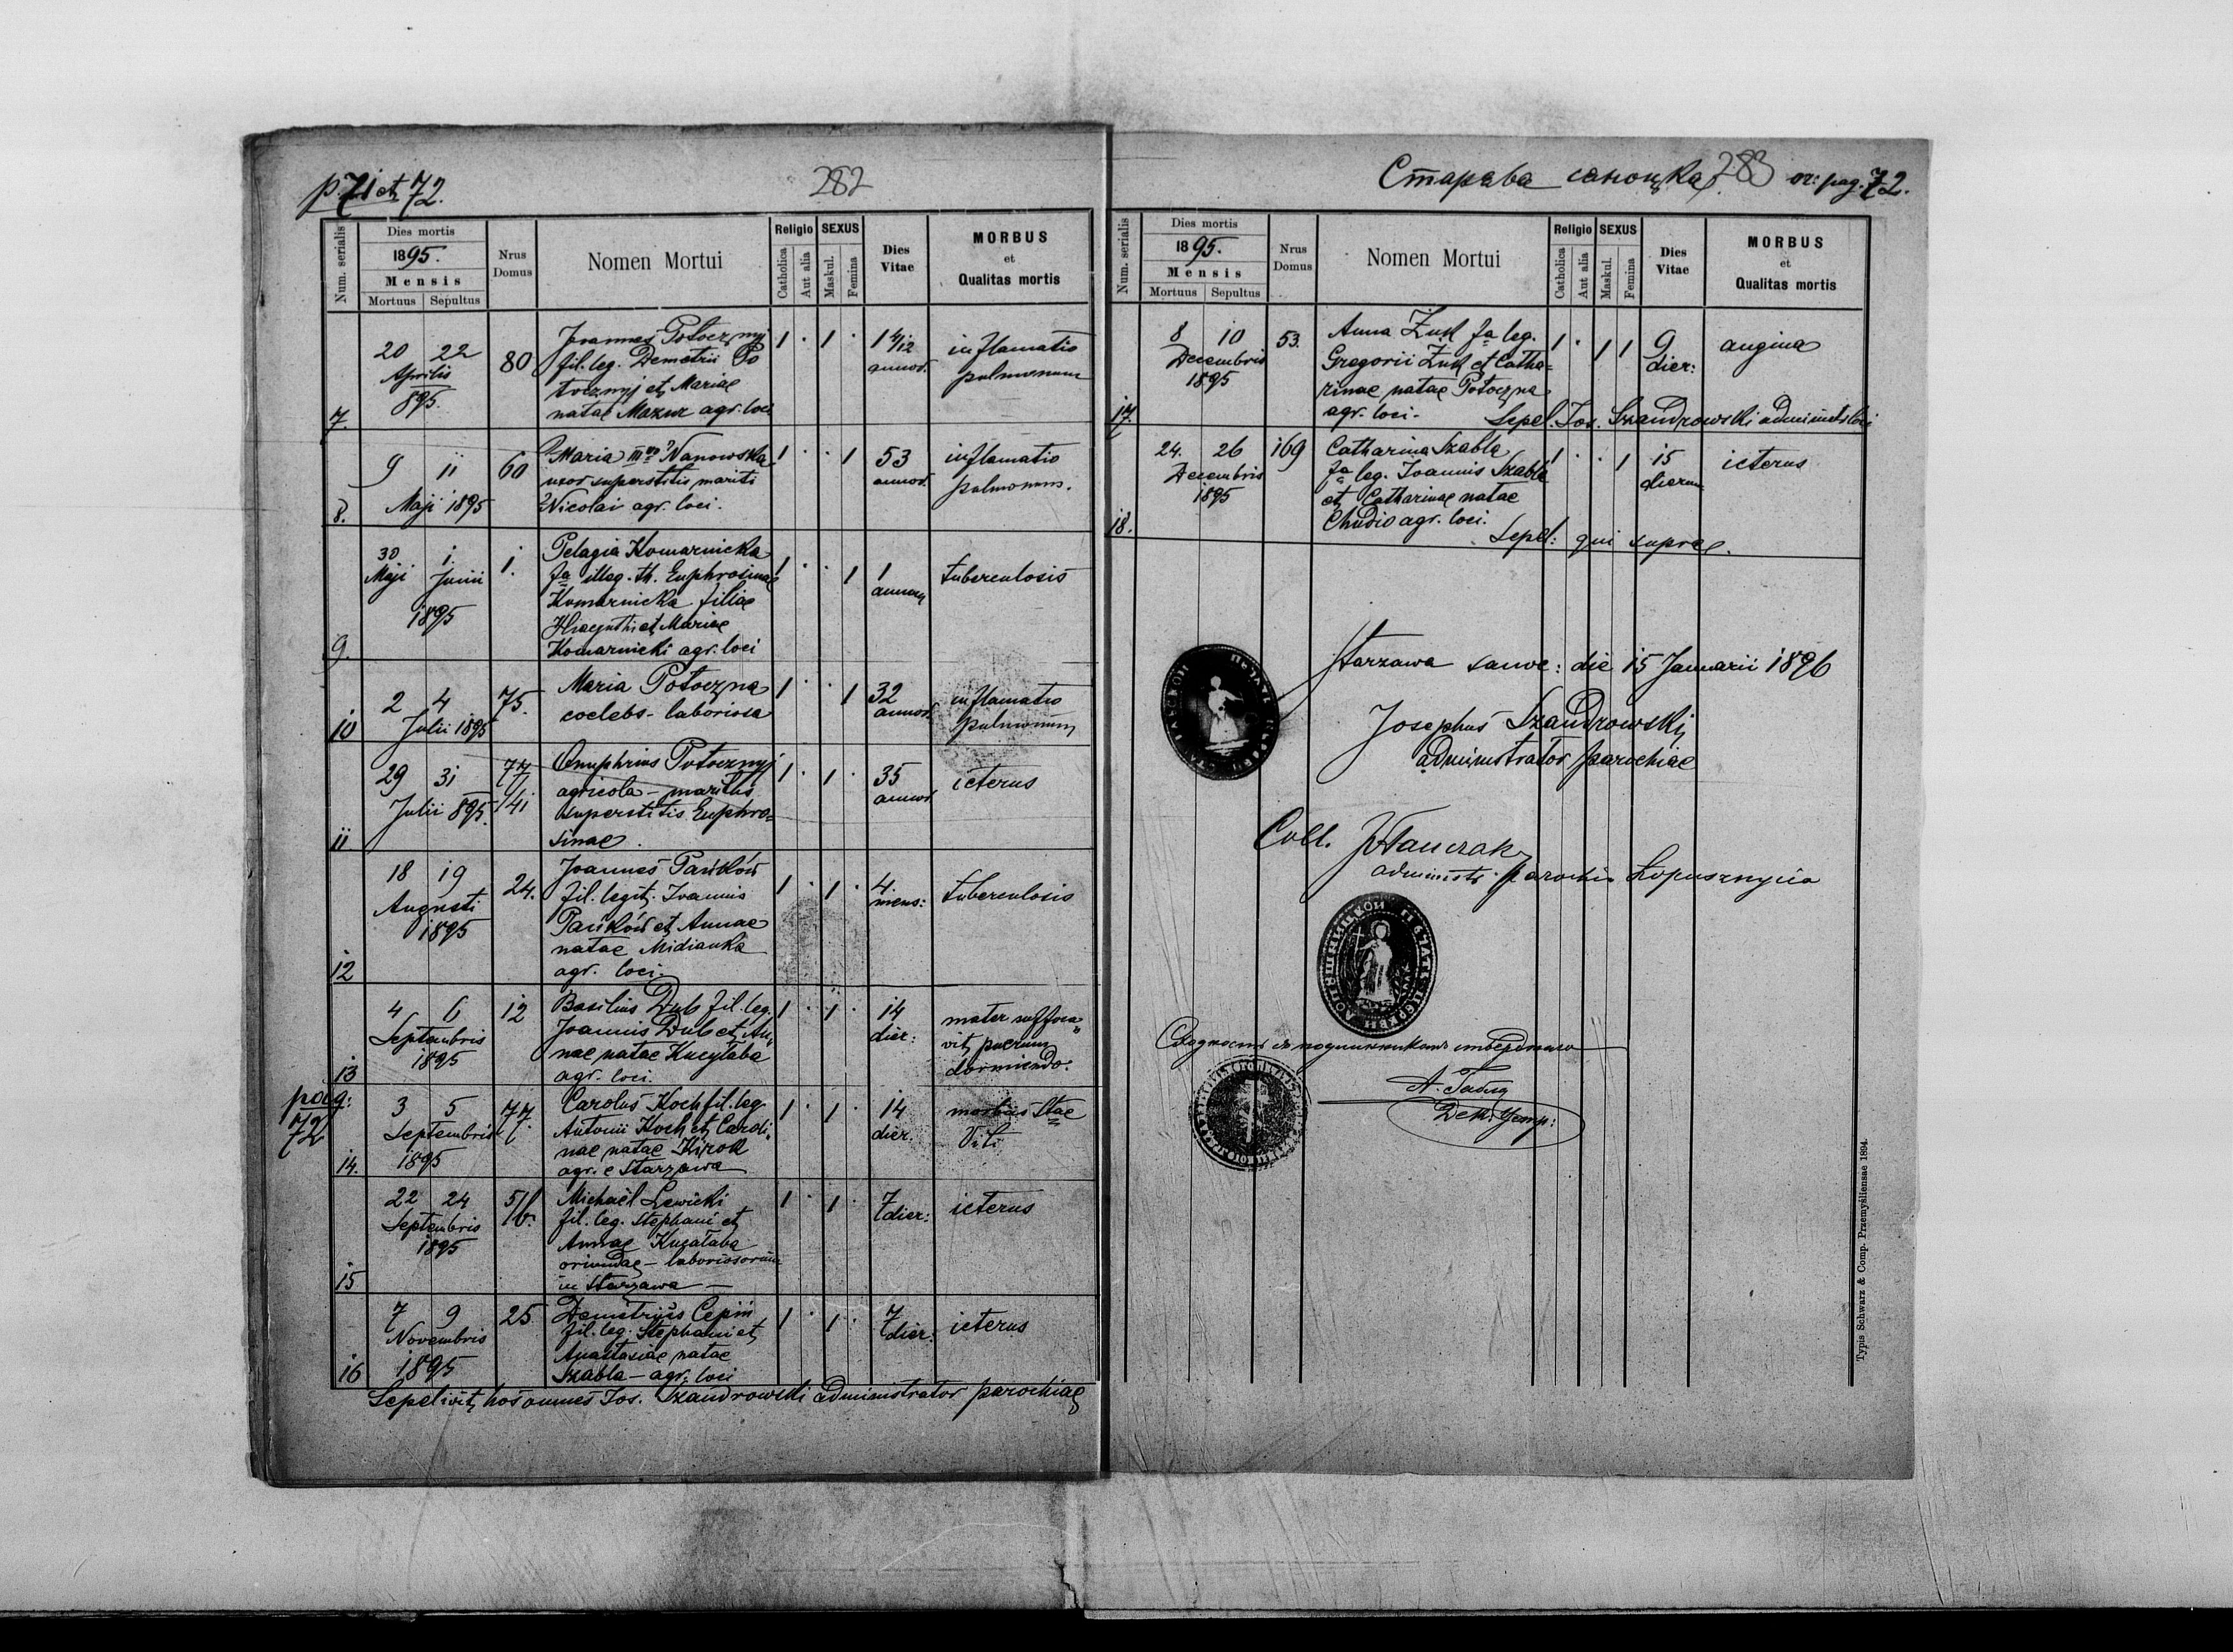 p. 71 et 72.
282
Num. serialis
Dies mortis
1895.
Mensis
Mortuus Sepultus
Nrus Domus
Nomen Mortui
Religio
Catholica
Aut alia
SEXUS
Maskul.
Femina
Dies Vitae
MORBUS
et
Qualitas mortis
7.
20 22
Aprilis
895.
80
Joannes Potocznyj
fil. leg. Demetrii Po
tocznyj et Mariae
natae Mazur agr. loci
1 . 1 .
annor.
inflamatio
pulmonum
8.
9 11
Maji 1895
60
Maria Wanowska
uxor superstitis mariti
Nicolai agr. loci.
1 . . 1
53
annor.
inflamatio
pulmonum.
9.
30 1.
Maji Junii
1895
1.
Pelagia Komarnicka
fa illeg. th. Euphrosinae
Komarnicka filiae
Hiacynthi et Mariae
Komarnicki agr. loci
1 . . 1
1
annum
tuberculosis
10
2 4
Julii 1895
75.
Maria Potoczna
coelebs - laboriosa
1 . . 1
32
annor.
inflamatio
pulmonum
11.
29 31
Julii 895.
77/141
Onuphrius Potocznyj
agricola - maritus
superstitis Euphro=
sinae.
1 . 1 .
35
annor.
icterus
12
18 19
Augusti
1895
24.
Joannes Pańków
fil. legit. Joannis
Pańków et Annae
natae Midianka
agr. loci.
1 . 1 .
4.
mens:
tuberculosis
13
4 6
Septembris
1895
12
Basilius Dub fil. leg.
Joannis Dub et An„
nae natae Kucytaba
agr. loci.
1 . 1 .
14
dier:
mater suffoca„
vit puerum
dormiendo.
pag:
72
14.
3 5
Septembris
1895
77.
Carolus Koch fil. leg
Antonii Koch et Caroli„
nae natae Kirok
agr. e Starzawa
1 . 1 .
14
dier.
morbus Stae
Viti
15
22 24
Septembris
1895
Michaël Lewicki
fil. leg. Stephani et
Annae Kucałaba
oriundae - laboriosorum
in Starzawa -
1 . 1 .
7
dier:
icterus
16
7 9
Novembris
1895
25
Demetrius Cepin
fil. leg. Stephani et
Anastasiae natae
Szabla - agr. loci
1 . 1 .
7
dier:
icterus
Sepelivit hos omnes Jos. Szandrowski administrator parochiae
Старава саноцка.
283
or: pag. 72.
Num. serialis
Dies mortis
1895.
Mensis
Mortuus Sepultus
Nrus Domus
Nomen Mortui
Religio
Catholica
Aut alia
SEXUS
Maskul.
Femina
Dies Vitae
MORBUS
et
Qualitas mortis
17.
8 10
Decembris
1895
53.
Anna Żuk fa leg.
Gregorii Żuk et Catha=
rinae natae Potoczna
agr. loci.
1 . 1 1
9
dier:
angina
Sepel. Jos. Szandrowski administ. loci
18.
24. 26
Decembris
1895
169
Catharina Szabla
fa leg. Joannis Szabla
et Catharinae natae
Chudio agr. loci.
1 . . 1
15
dierum
icterus
Sepel: qui suprae.
Starzawa sanoc: die 15 Januarii 1896
Josephus Szandrowski
administrator parochiae
Coll.
administr. parochi Łopusznycia
А. Габла
Typis Schwarz & Comp. Przemyśliensae 1894.